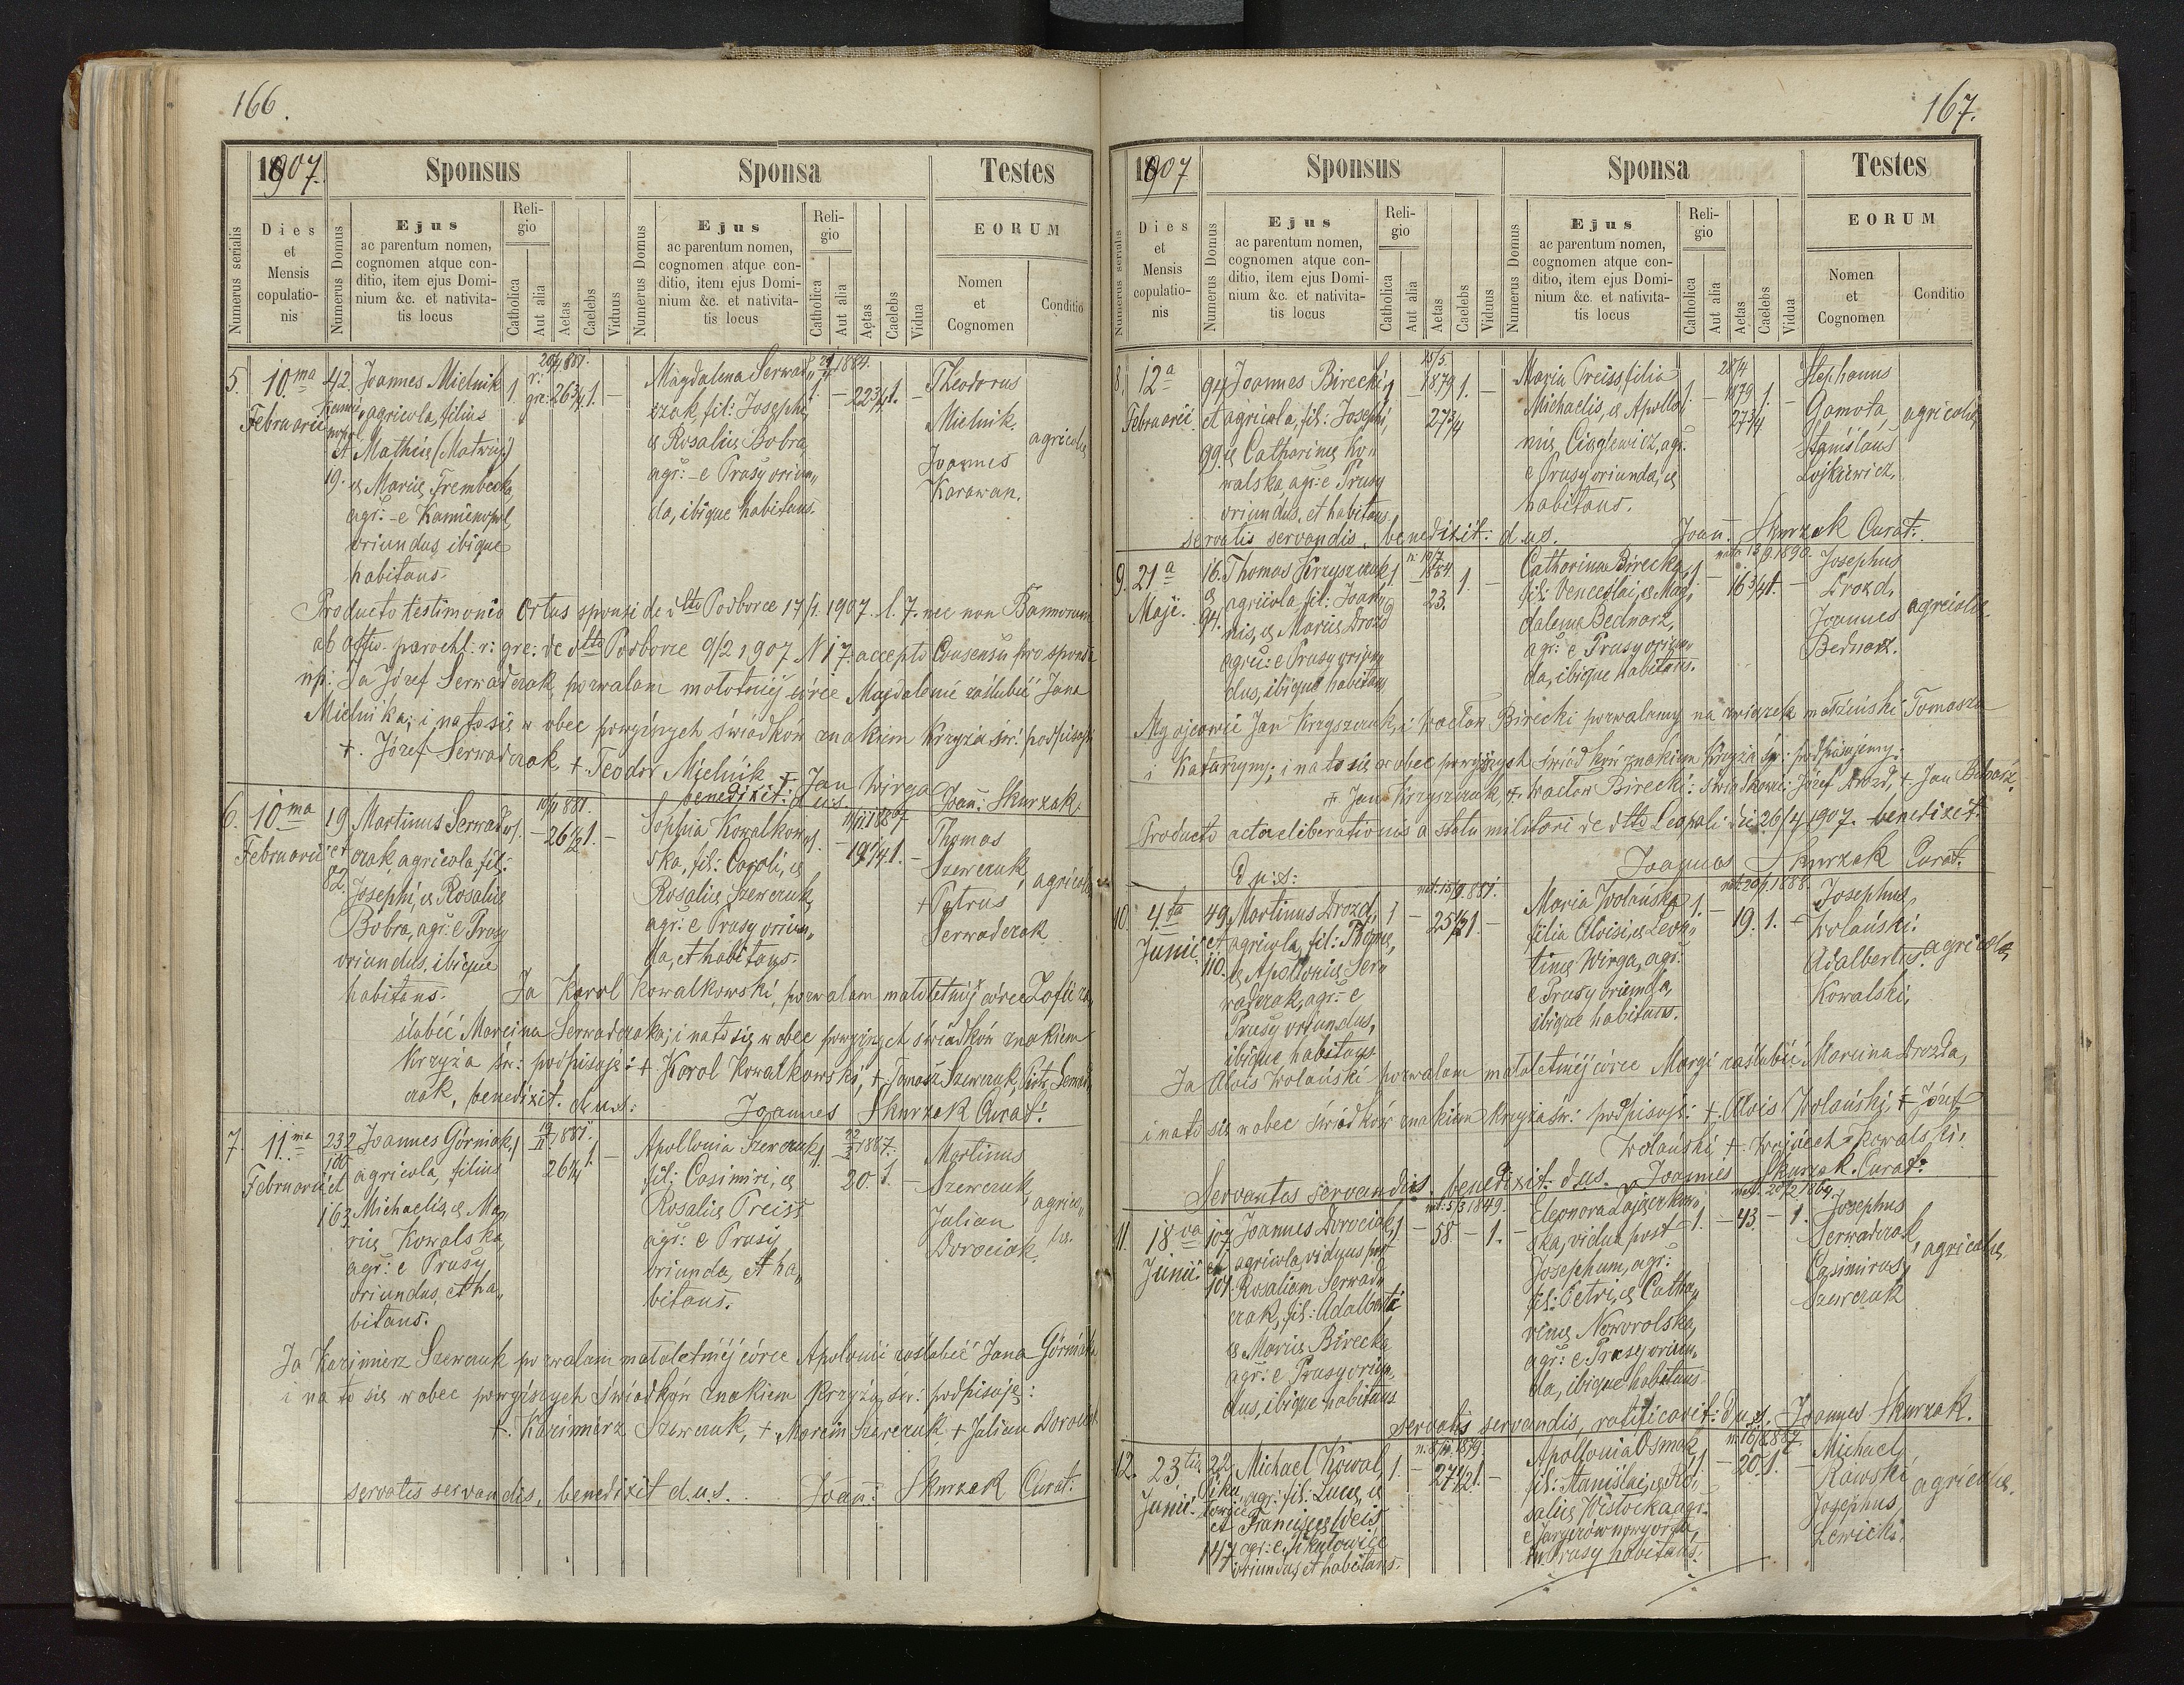 166.
1907.
Sponsus
Sponsa
Testes
Numerus serialis
Dies
et
Mensis
copulatio-
nis
Numerus Domus
Ejus
ac parentum nomen,
cognomen atque con-
ditio, item ejus Domi-
nium &c. et nativita-
tis locus
Reli-
gio
Catholica
Aut alia
Aetas
Caelebs
Viduus
Numerus Domus
Ejus
ac parentum nomen,
cognomen atque con-
ditio, item ejus Domi-
nium &c. et nativita-
tis locus
Reli-
gio
Catholica
Aut alia
Aetas
Caelebs
Vidua
EORUM
Nomen
et
Cognomen
Conditio
5.
10 ma
Februarii
42
et
19.
Joannes Mielnik
agricola, filius
Mathiæ (Matwiy)
& Mariæ Trembecka,
agr: e Kamienopol
oriundus ibique
habitans.
1.
r:
gre:
26 3/4
1.
–
Magdalena Serwad„
czak, fil: Josephi,
& Rosaliæ Bobra,
agr: e Prusy oriun„
da, ibique habitans.
1.
–
1884.
22 3/4
1.
–
Theodorus
Mielnik.
Joannes
Karawan.
agricolæ
Producto testimonio Ortus sponsi de dtto Podborce 17/1. 1907. l. 7. nec non Bannorum
ab offio. parochl: r: gre: de dtto Podborce 9/2 1907 N 17: accepto Consensu pro sponsa
np: Ja Józef Serwadczak pozwalam małotniéj córce Magdalenie zaślubić Jana
Mielnika; i na to się w obec powyższych świadków znakiem Krzyża św: podpisuję
+. Józef Serwadczak, + Teodor Mielnik + Jan Wirga
benedixit: d. u. s. Joan̄: Skurzak.
6.
10 ma
Februarii
19
et
82.
Martinus Serwad„
czak, agricola, fil:
Josephi, & Rosaliæ
Bobra, agr: e Prusy
oriundus, ibique
habitans.
1.
–
26 1/2
1.
–
Sophia Kowalkow„
ska, fil: Caroli, &
Rosaliæ Szewczuk,
agr: e Prusy oriun„
da, et habitans.
1.
–
19 1/4
1.
–
Thomas
Szewczuk,
+ Petrus
Serwadczak
agricolæ
Ja Karol Kowalkowski, pozwalam małoletniéj córce Zofii za„
ślubić Marcina Serwadczaka; i na to się w obec powyższych świadków znakiem
Krzyża św: podpisuję: + Karol Kowalkowski, + Tomasz Szewczuk, Piotr Serwad„
czak, benedixit. d. u. s: Joannes Skurzak Curat:
7.
11. ma
Februarii
232
100
et
163
Joannes Górniak,
agricola, filius
Michaelis, & Ma„
riæ Kowalska,
agr: e Prusy
oriundus, et ha„
bitans.
1
1881.
26 1/4
1.
–
Apollonia Szewczuk,
fil: Casimiri, &
Rosaliæ Preiss
agr: e Prusy
oriunda, et ha„
bitans.
1.
1887.
20.
1.
–
Martinus
Szewczuk,
Julian
Dorociak.
agrico„
læ.
Ja Kazimierz Szewczuk pozwalam małoletniéj córce Apolonii zaślubić Jana Górniaka
i na to się w obec powyższych świadków znakiem Krzyża św: podpisuję:
+. Kazimierz Szewczuk, + Marcin Szewczuk + Julian Dorociak
servatis servandis, benedixit d. u. s. Joan̄: Skurzak Curat.
167.
1907
Sponsus
Sponsa
Testes
Numerus serialis
Dies
et
Mensis
copulatio-
nis
Numerus Domus
Ejus
ac parentum nomen,
cognomen atque con-
ditio, item ejus Domi-
nium &c. et nativita-
tis locus
Reli-
gio
Catholica
Aut alia
Aetas
Caelebs
Viduus
Numerus Domus
Ejus
ac parentum nomen,
cognomen atque con-
ditio, item ejus Domi-
nium &c. et nativita-
tis locus
Reli-
gio
Catholica
Aut alia
Aetas
Caelebs
Vidua
EORUM
Nomen
et
Cognomen
Conditio
8.
12 a
Februarii.
94
et
99.
Joannes Birecki,
agricola, fil: Josephi,
& Catharinæ Ko„
walska, agr: e Prusy
oriundus, et habitans.
1
15/5.
1879
27 3/4
1.
–
Maria Preiss filia
Michaelis, & Apollo„
niæ Cięglewicz, agr:
e Prusy oriunda, &
habitans.
1.
28/4
1879
27 3/4
1.
–
Stephanus
Gamota,
Stanislaus
Łojkiewicz.
agricolæ,
servatis servandis, benedixit: d. u. s. Joan̄. Skurzak Curat:
9.
21 a
Maji.
16.
&
94.
Thomas Krzyszczuk
agricola fil: Joan„
nis, & Mariæ Drozd
agr: e Prusy oriun„
dus, ibique habitans
1
1884.
23.
1
–
Catharina Birecka,
fil: Venceslai, & Mag„
dalenæ Bednarz,
agr: e Prusy oriun„
da, ibique habitans.
1
–
nata 13/9. 1890.
16 3/4
1.
–
Josephus
Drozd,
Joannes
Bednarz.
agricolæ
My ojcowie Jan Krzyszczuk, i Wacław Birecki pozwalamy na związek małżeński Tomasza
i Katarzyny; i na to się w obec powyższych świadków znakiem Krzyża św: podpisujemy:
+ Jan Krzyszczuk, + Wacław Birecki: Świadkowie: Józef Drozd, + Jan Bednarz.
Producto acta deliberationis a statu militari de dtto Leopoli dei 26/4 1907. benedixit
d. u. s: Joannes Skurzak Curat.
10.
4. ta
Junii.
49.
et
110.
Martinus Drozd,
agricola, fil: Thomæ,
& Apolloniæ Ser„
wadczak, agr: e
Prusy oriundus,
ibique habitans
1
–
25 1/2
1
–
Maria Wolańska
filia Aloisi, & Leon„
tinæ Wirga, agr:
e Prusy oriunda,
ibique habitans.
1.
–
1888.
19.
1.
–
Josephus,
Wolański.
Adalbertus
Kowalski,
agricolæ,
Ja Alois Wolański pozwalam małoletniéj córce Maryi zaślubić Marcina Drozda,
i na to się w obec świadków znakiem Krzyża św: podpisuję: +. Alois Wolański, + Józef
Wolański, + Wojciech Kowalski.
Servantes servandis benedixit. d. u. s. Joannes Skurzak. Curat.
11.
18 va
Junii.
107
et
101.
Joannes Dorociak,
agricola, viduus post
Rosaliam Serwad„
czak, fil: Adalberti
& Mariæ Birecka
agr: e Prusy oriun„
dus, ibique habitans
1
nat: 5/3 1849.
58
–
1.
–
Eleonora Zajączkow„
ska, vidua post
Josephum, agr:
fil: Petri, & Catha„
rinæ Noworolska,
agr: e Prusy oriun„
da, ibique habitans
1.
–
43.
–
1.
Josephus
Serwadczak,
Casimirus,
Szewczuk
agricolæ,
servatis servandis, ratificavit: d. u. s. Joannes Skurzak.
12.
23 tia
Junii.
22.
et
147
Michael Kowal,
agr: fil: Lucæ, &
Franciscæ Weis
agr: e Pikułowice
oriundus, et habitans.
1.
–
27 1/2
1.
–
Apollonia Osmak,
fil: Stanislai, & Ro„
saliæ Wisłocka agr:
in Prusy habitans.
1
–
20.
1.
–
Michael
Rawski
Josephus,
Lewicki,
agricolæ.